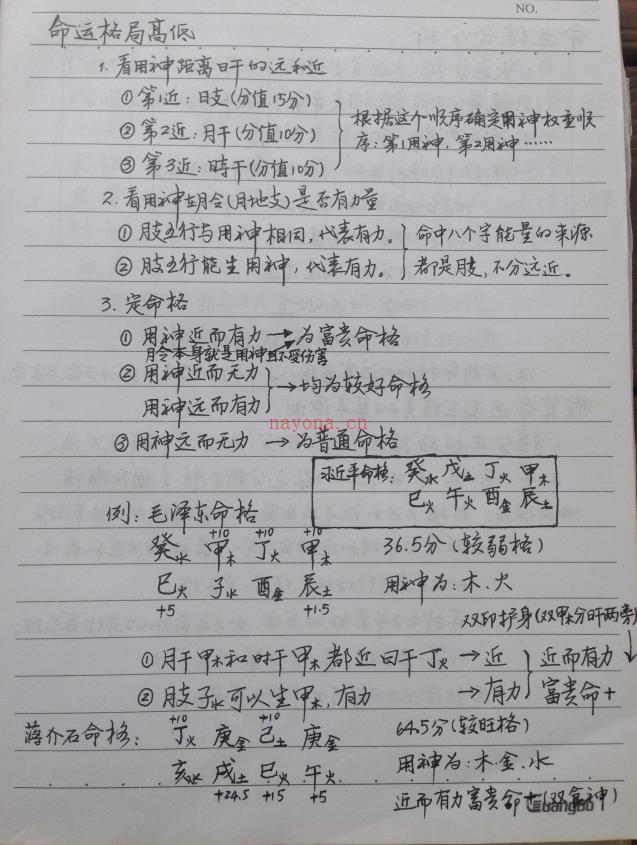 NO.
命运格局高低
1. 看用神距离日干的远和近
① 第1近：日支(分值15分)
② 第2近：月干(分值10分)
③ 第3近：时干(分值10分)
根据这个顺序确定用神权重顺
序：第1用神，第2用神……
2. 看用神在月令(月地支)是否有力量
① 月支五行与用神相同，代表有力。
② 月支五行能生用神，代表有力。
命中八个字能量的来源
都是月支，不分远近。
3. 定命格
① 用神近而有力→为富贵命格
月令本身就是用神且不受伤害
② 用神近而无力
用神远而有力
→均为较好命格
③ 用神远而无力 →为普通命格
习近平命格： 癸水 戊土 丁火 甲木
巳火 午火 酉金 辰土
例：毛泽东命格
+10 +10 +10
癸水 甲木 丁火 甲木
36.5分(较弱格)
巳火 子水 酉金 辰土
用神为：木、火
+5 +1.5
双印护身(双甲木分日干两旁)
① 月干甲木和时干甲木都近日干丁火→近
② 月支子水可以生甲木，有力 →有力
近而有力
富贵命+
蒋介石命格：
+10 +10
丁火 庚金 己土 庚金
64.5分(较旺格)
亥水 戌土 巳火 午火
用神为：木、金、水
+24.5 +15 +5
近而有力富贵命+(双食神)
GuangBo
nayona.cn